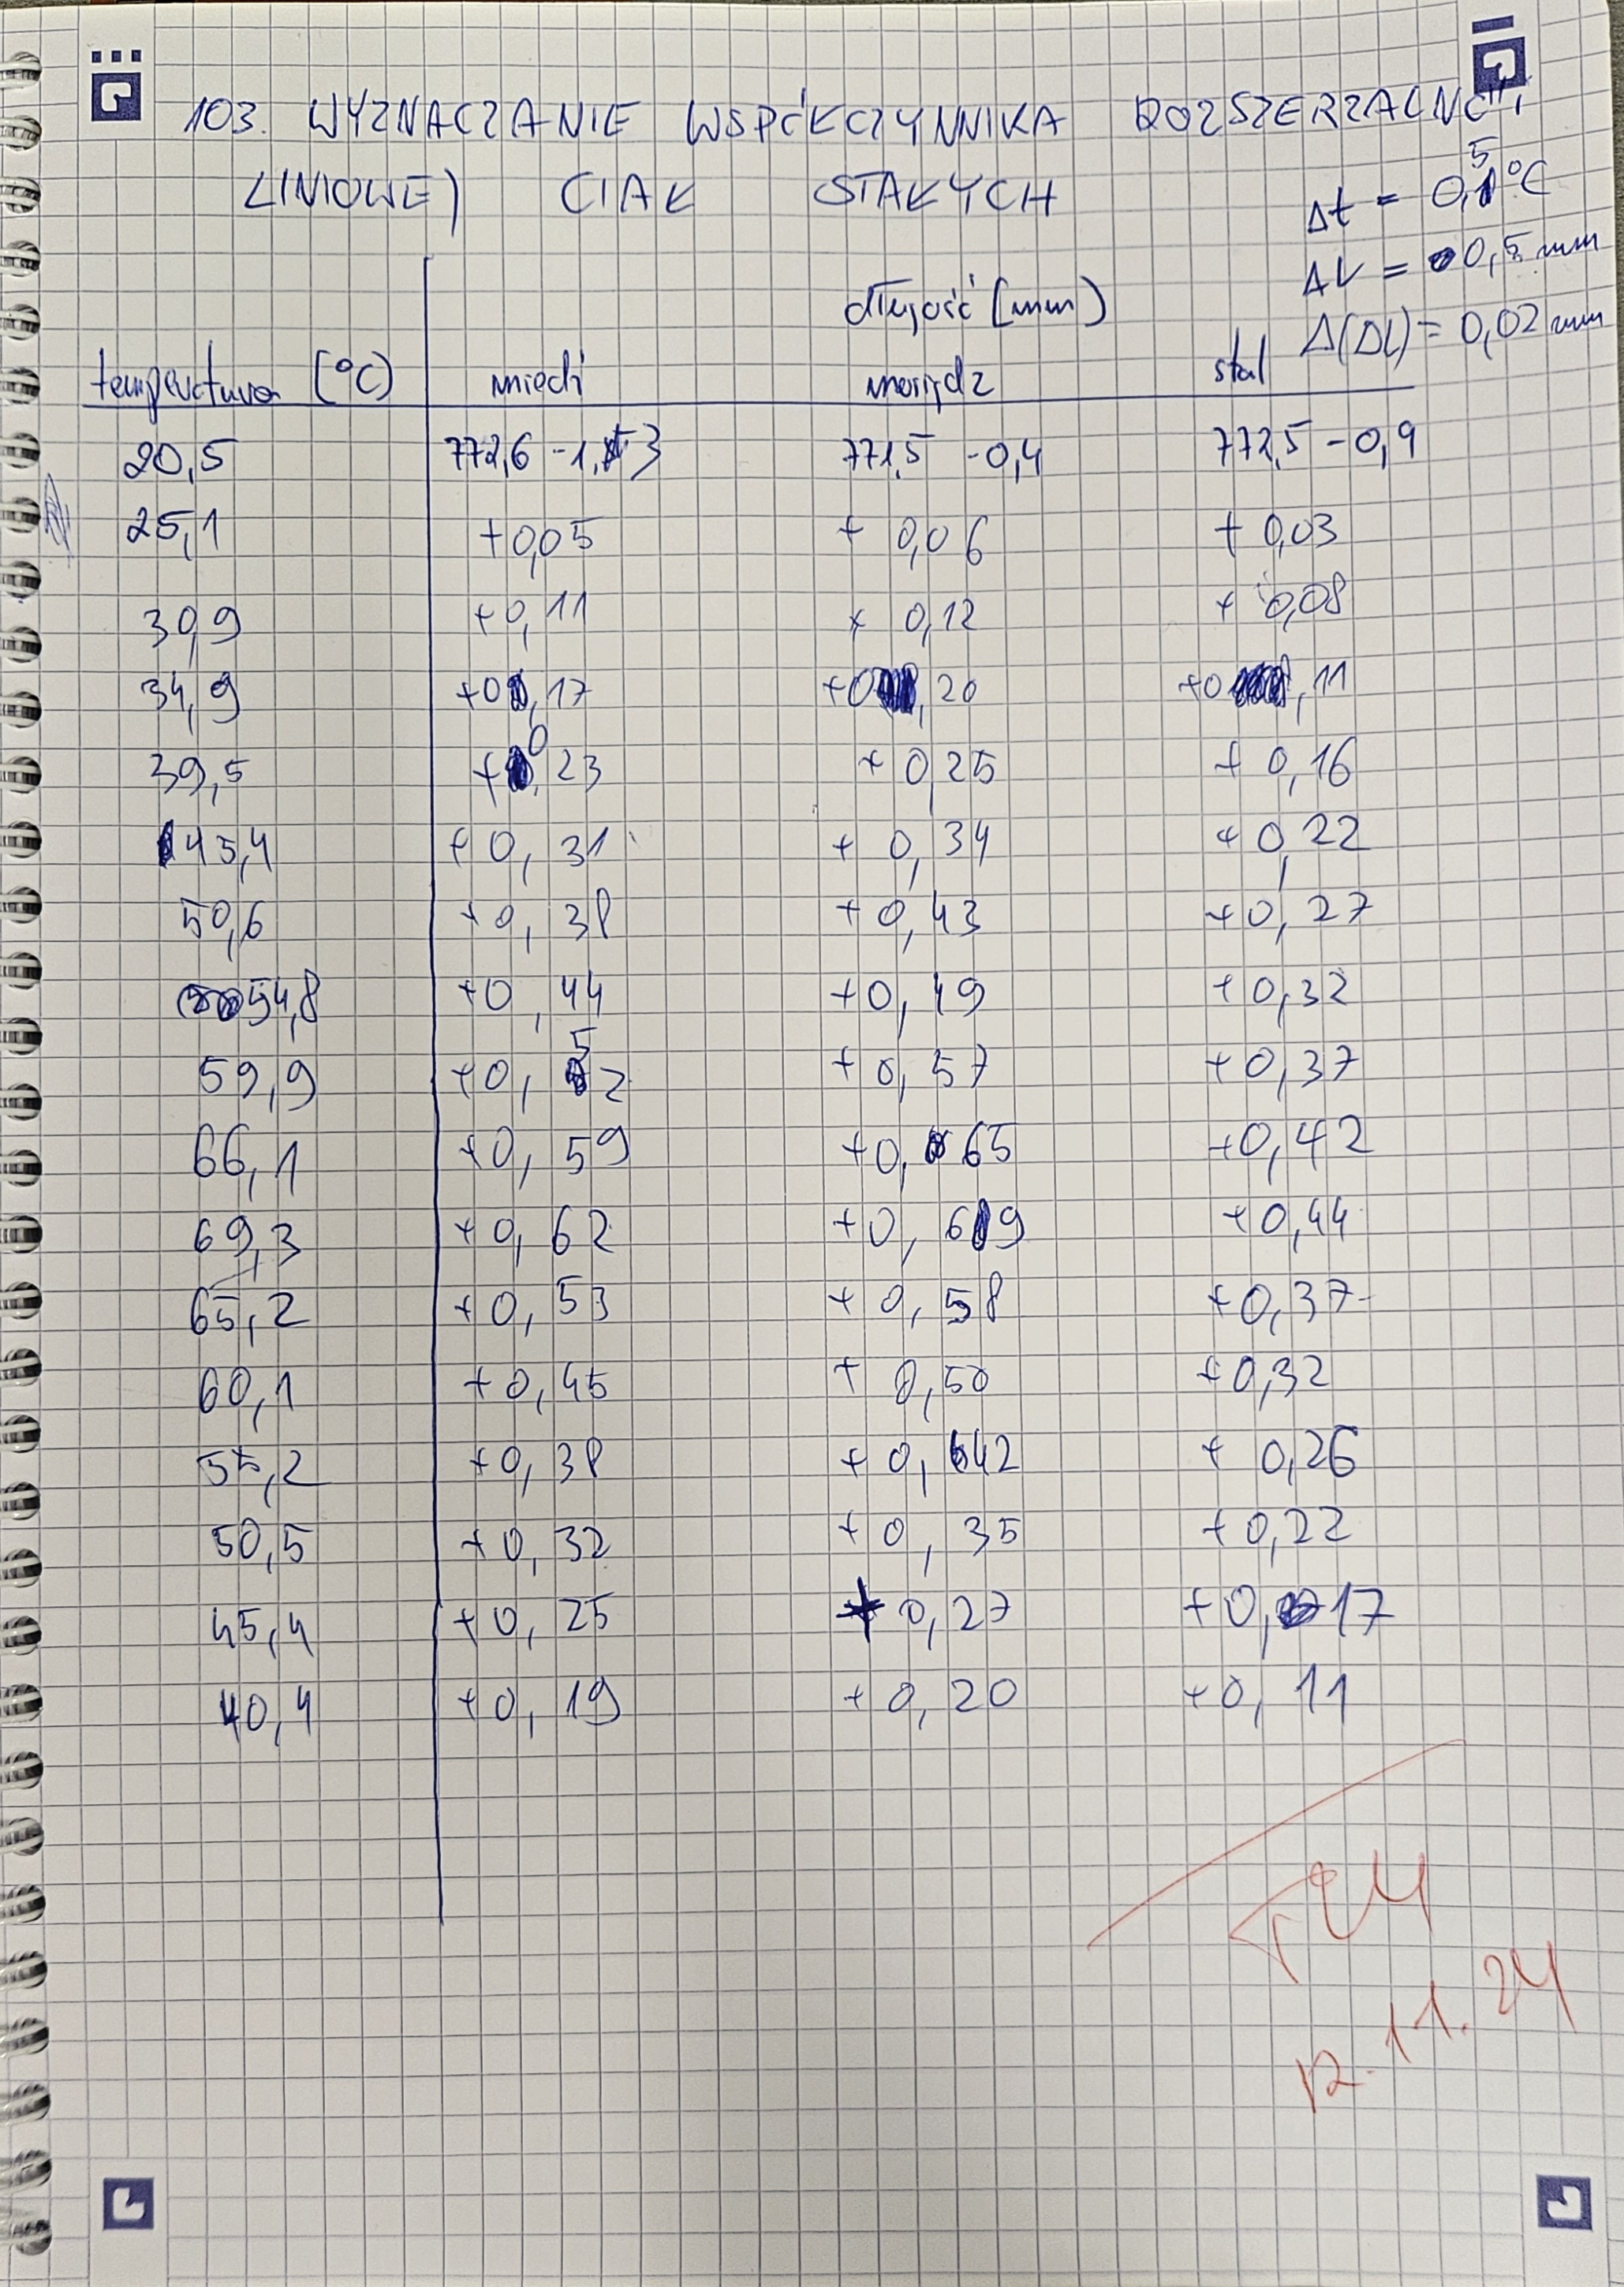 103. WYZNACZANIE WSPÓŁCZYNNIKA ROZSZERZALNOŚCI
LINIOWEJ CIAŁ STAŁYCH
Δt = 0,5°C
ΔL = 0,5 mm
Δ(ΔL) = 0,02 mm
długość [mm]
temperatura [°C] miedź mosiądz stal
20,5 772,6 -1,3 771,5 -0,4 772,5 -0,9
25,1 +0,05 + 0,06 + 0,03
30,9 +0,11 + 0,12 + 0,08
34,9 +0,17 +0,20 +0,11
39,5 +0,23 + 0,25 + 0,16
45,4 +0,31 + 0,34 + 0,22
50,6 +0,38 + 0,43 +0,27
54,8 +0,44 +0,49 + 0,32
59,9 +0,52 + 0,57 +0,37
66,1 +0,59 +0,65 +0,42
69,3 +0,62 +0,69 +0,44
65,2 +0,53 + 0,58 +0,37
60,1 +0,45 + 0,50 +0,32
55,2 +0,38 + 0,42 + 0,26
50,5 +0,32 + 0,35 + 0,22
45,4 +0,25 + 0,27 +0,17
40,4 +0,19 + 0,20 +0,11
12.11.24